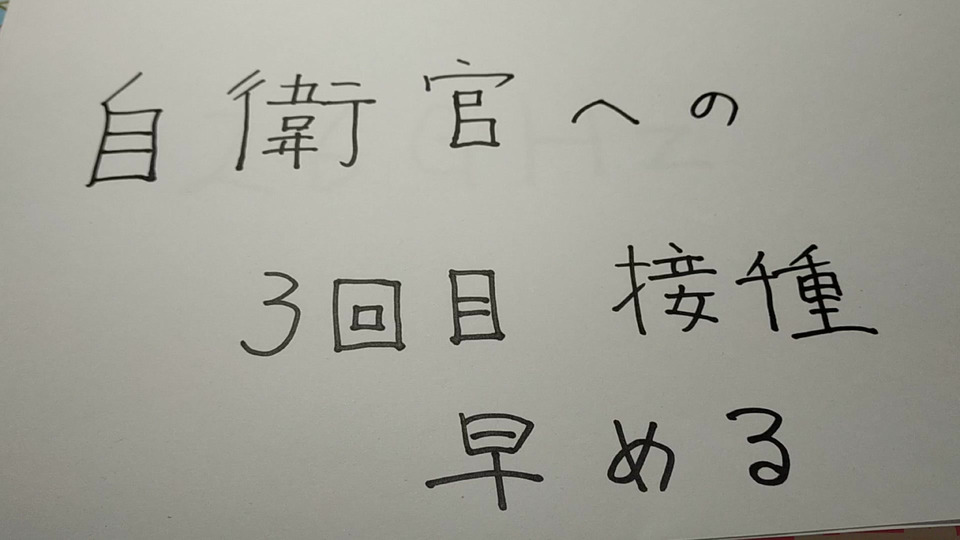 自衛官への
3回目 接種
早める